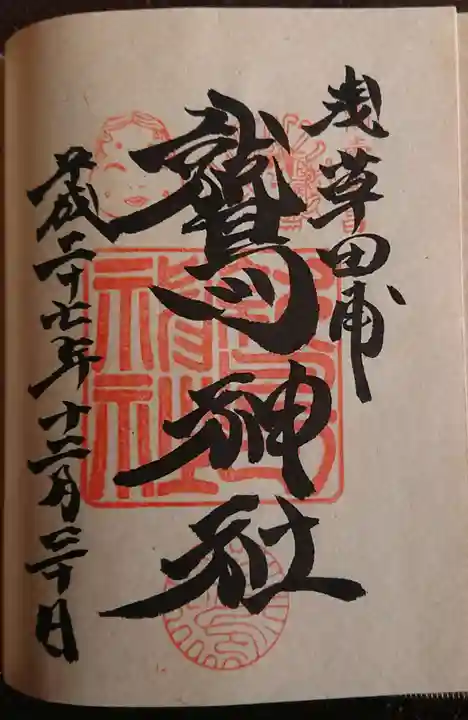 浅草田甫
鷲神社
平成二十七年十二月三十日